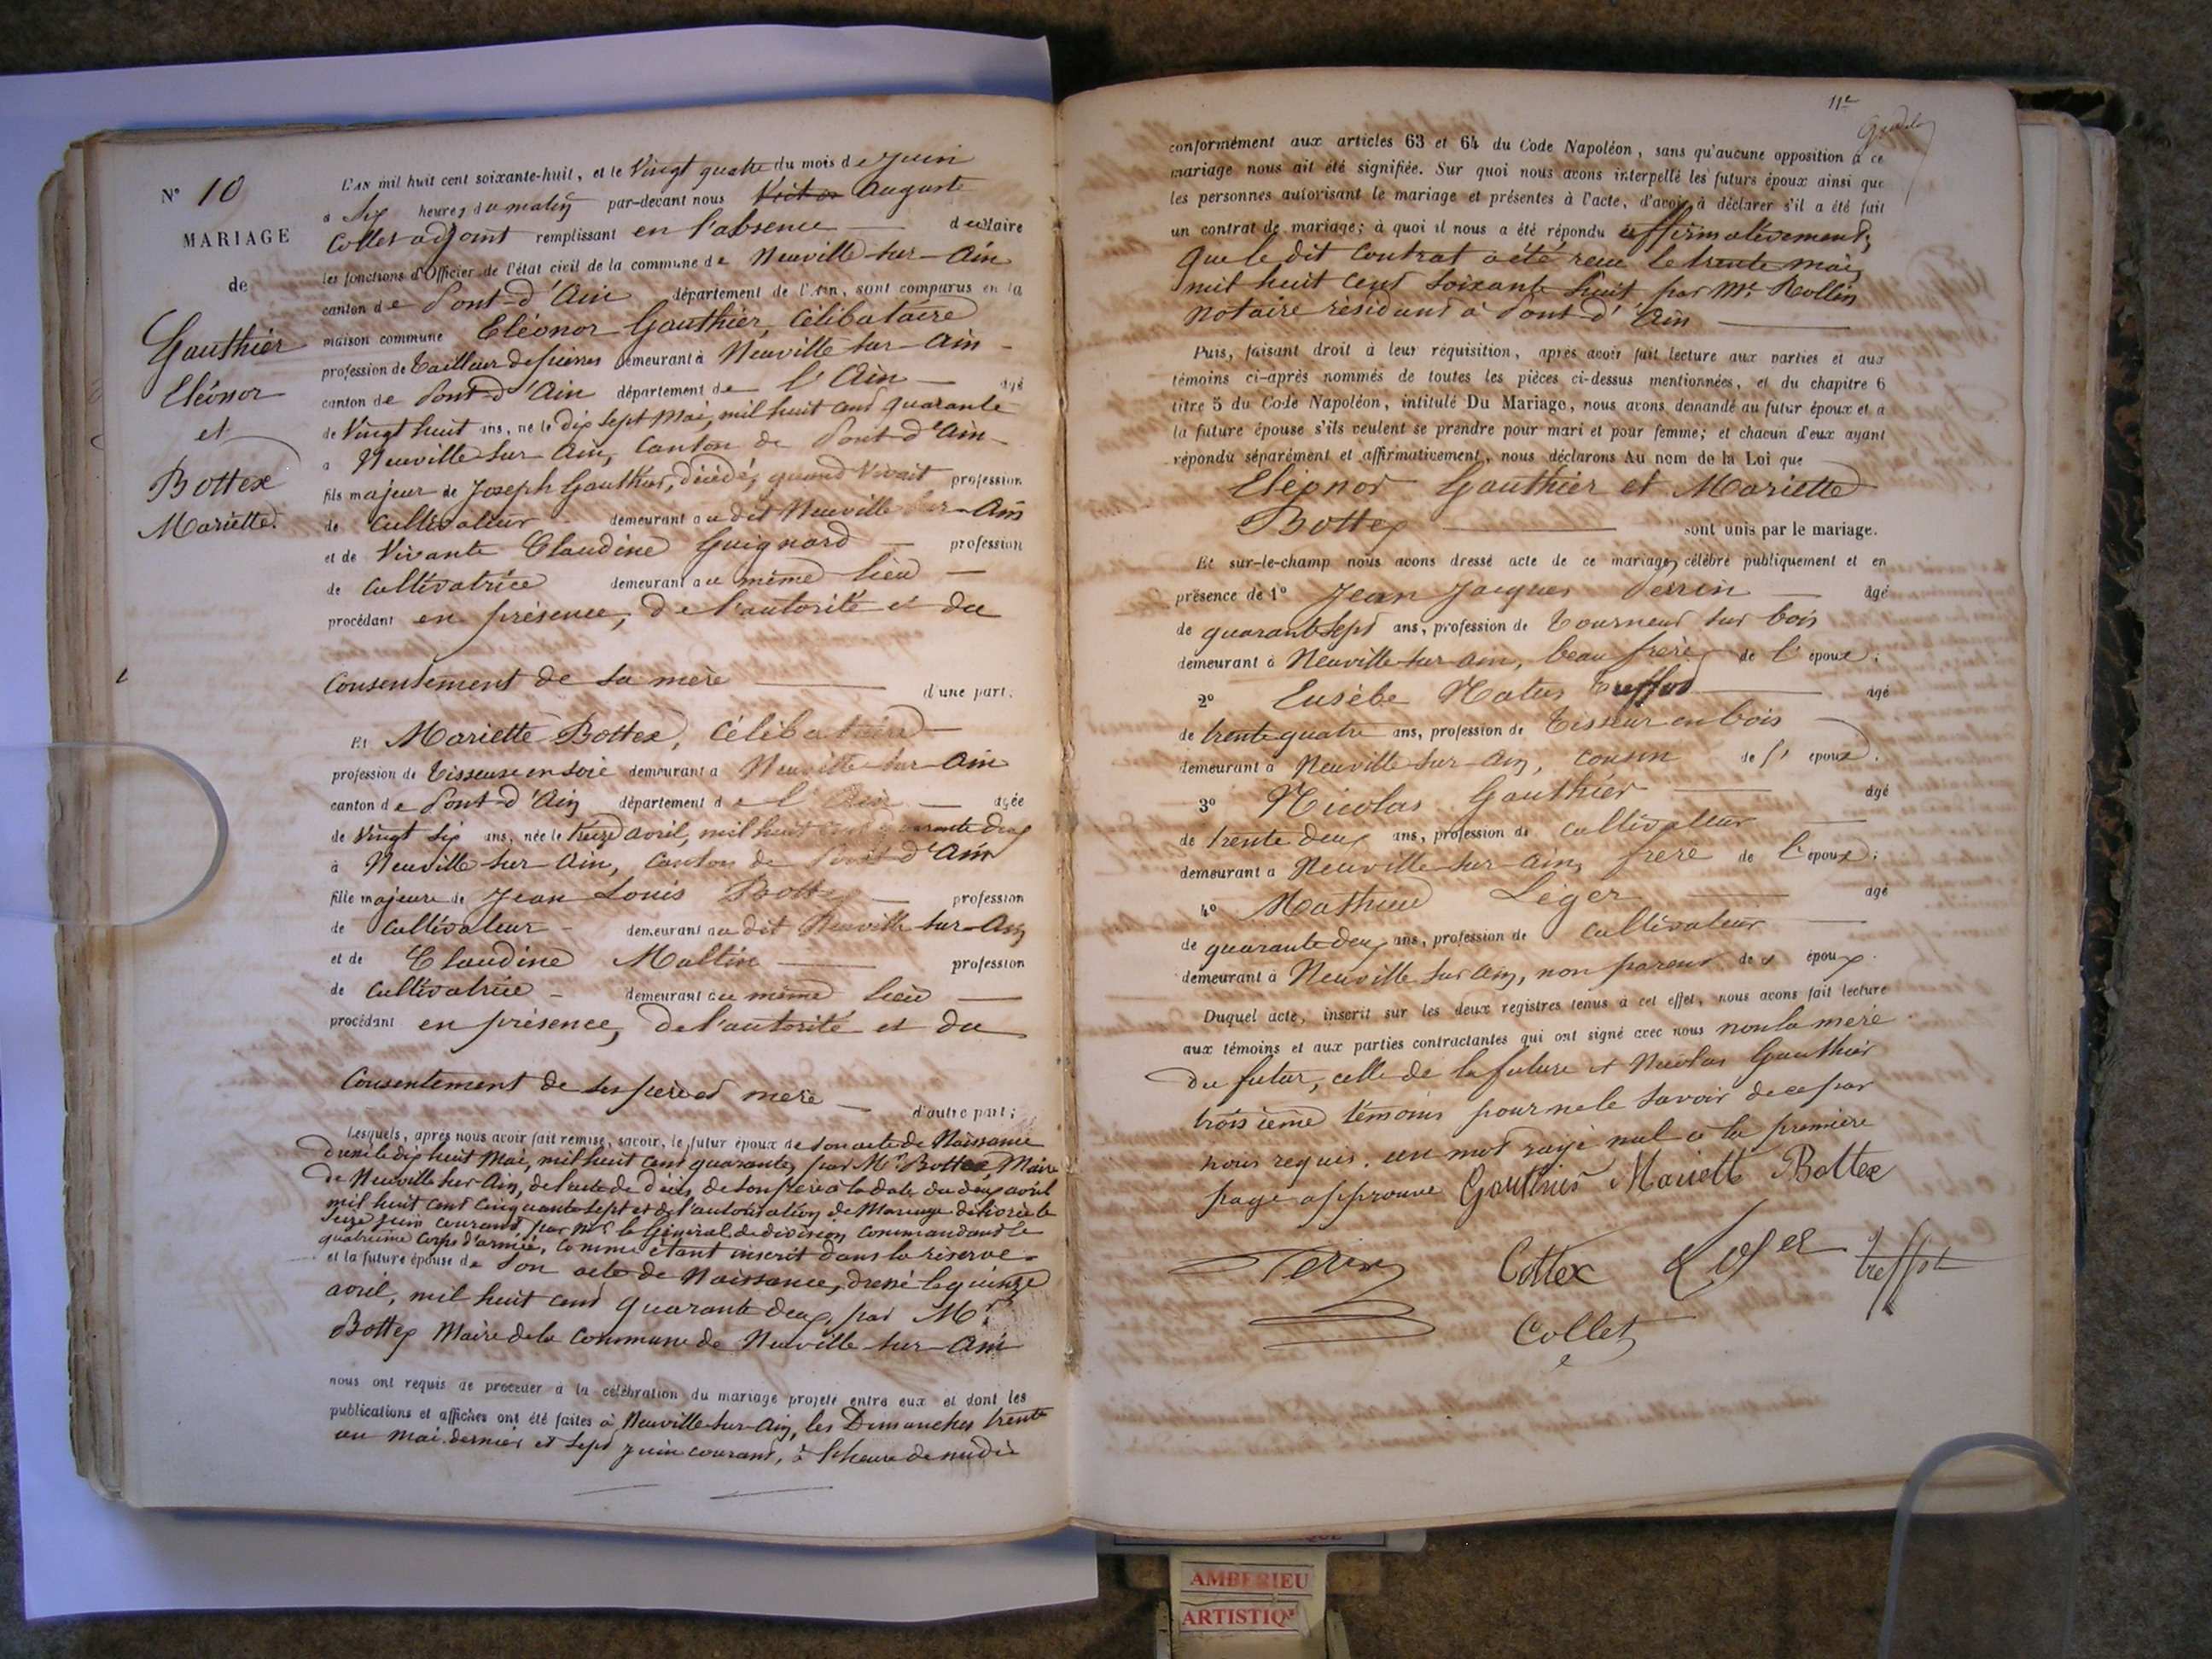 N° 10
MARIAGE
de
Gauthier
Eléonor
et
Bottex
Mariette.
L'AN mil huit cent soixante-huit, et le Vingt quatre du mois de Juin
a Six heures du matin par-devant nous Victor Auguste
Collet adjoint remplissant en l'absence du Maire
les fonctions d'Officier de l'état civil de la commune de Neuville-sur-Ain
canton de Pont-d'Ain département de l'Ain, sont comparus en la
maison commune Eléonor Gauthier, Célibataire
profession de Tailleur de pierres demeurant à Neuville sur Ain
canton de Pont-d'Ain département de l'Ain agé
de Vingt huit ans, né le dix sept Mai, mil huit cent quarante
a Neuville sur Ain, Canton de Pont-d'Ain
fils majeur de Joseph Gauthier, décédé, quand Vivait profession
de Cultivateur demeurant au dit Neuville sur-Ain
et de Vivante Claudine Guignard profession
de Cultivatrice demeurant au même lieu
procédant en présence, de l'autorité et du
Consentement de sa mère d'une part.
Et Mariette Bottex, Célibataire
profession de Tisseuse en soie demeurant a Neuville sur-Ain
canton de Pont-d'Ain département de l'Ain agée
de Vingt six ans, née le treize avril, mil huit cent quarante deux
à Neuville sur-Ain, Canton de Pont-d'Ain
fille majeure de Jean Louis Bottex profession
de Cultivateur demeurant au dit Neuville sur-Ain
et de Claudine Maltin profession
de Cultivatrice demeurant au même lieu
procédant en présence, de l'autorité et du
Consentement de ses père et mère d'autre part;
Lesquels, après nous avoir fait remise, savoir, le futur époux de son acte de Naissance
dressé le dix huit Mai, mil huit cent quarante, par Mr Bottex Maire
de Neuville sur-Ain, de l'acte de décès de son père à la date du deux avril
mil huit cent cinquante sept et de l'autorisation de Mariage délivrée le
seize juin courant par Mr le Général de division commandant le
quatrième Corps d'armée, comme étant inscrit dans la réserve
et la future épouse de Son acte de Naissance, dressé le quinze
avril, mil huit cent quarante deux, par Mr
Bottex Maire de la Commune de Neuville-sur-Ain
nous ont requis de procéder à la célébration du mariage projeté entre eux et dont les
publications et affiches ont été faites à Neuville-sur-Ain, les Dimanches trente
un mai dernier et sept juin courant, à l'heure de midi
11e
conformément aux articles 63 et 64 du Code Napoléon, sans qu'aucune opposition à ce
mariage nous ait été signifiée. Sur quoi nous avons interpellé les futurs époux ainsi que
les personnes autorisant le mariage et présentes à l'acte, d'avoir à déclarer s'il a été fait
un contrat de mariage; à quoi il nous a été répondu affirmativement,
que le dit Contrat a été reçu le trente mai,
mil huit cent soixante huit par Me Rollin
notaire résidant à Pont-d'Ain
Puis, faisant droit à leur réquisition, après avoir fait lecture aux parties et aux
témoins ci-après nommés de toutes les pièces ci-dessus mentionnées, et du chapitre 6
titre 5 du Code Napoléon, intitulé Du Mariage, nous avons demandé au futur époux et à
la future épouse s'ils veulent se prendre pour mari et pour femme; et chacun d'eux ayant
répondu séparément et affirmativement, nous déclarons Au nom de la Loi que
Eléonor Gauthier et Mariette
Bottex sont unis par le mariage.
Et sur-le-champ nous avons dressé acte de ce mariage, célébré publiquement et en
présence de 1° Jean Jacques Perrin agé
de quarante sept ans, profession de Tourneur sur bois
demeurant à Neuville-sur-Ain, beau frère de l'époux;
2° Eusèbe Treffot agé
de trente quatre ans, profession de Tisseur en bois
demeurant à Neuville-sur-Ain, cousin de l'époux.
3° Nicolas Gauthier agé
de trente deux ans, profession de Cultivateur
demeurant a Neuville-sur-Ain, frère de l'époux;
4° Mathieu Léger agé
de quarante deux ans, profession de Cultivateur
demeurant à Neuville sur Ain, non parent des époux.
Duquel acte, inscrit sur les deux registres tenus à cet effet, nous avons fait lecture
aux témoins et aux parties contractantes qui ont signé avec nous non la mère
du futur, celle de la future et Nicolas Gauthier
troisième témoins pour ne le savoir de ce par
nous requis. un mot rayé nul à la première
page approuvé Gauthier Mariette Bottex
Perrin Bottex Léger Treffot
Collet
AMBERIEU
ARTISTIQ